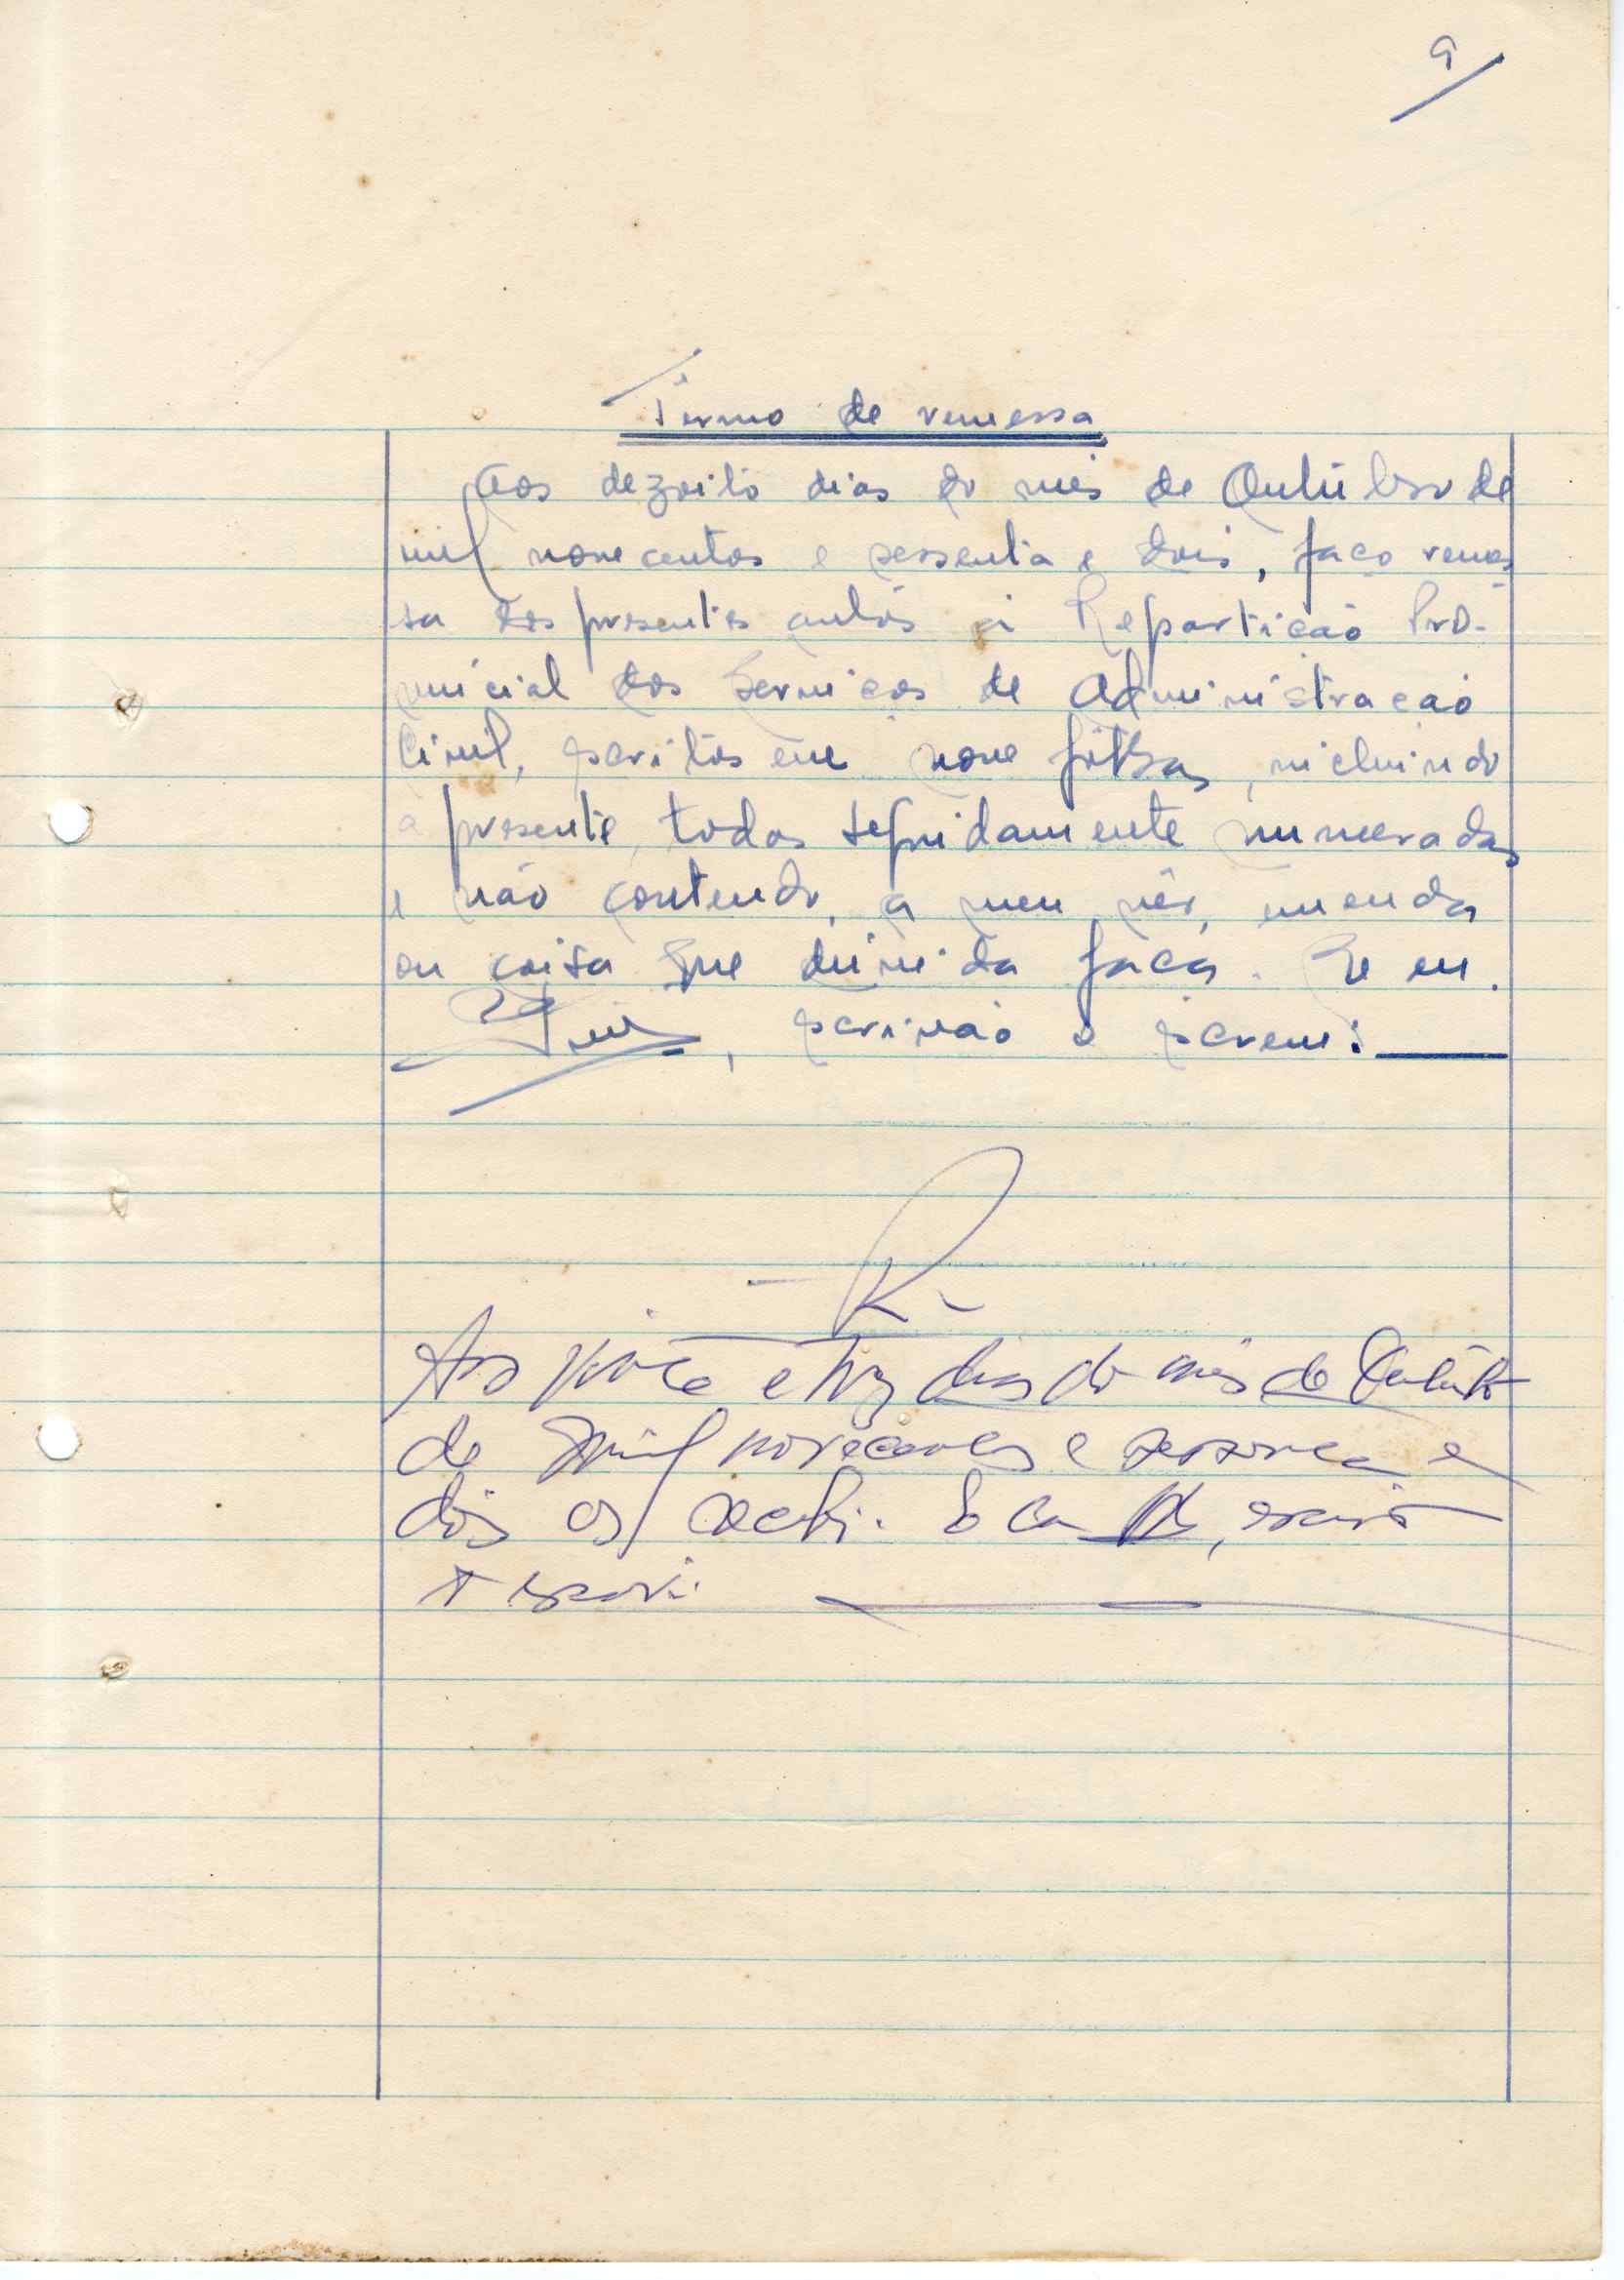 9
Termo de remessa
Aos dezoito dias do mês de Outubro de
mil novecentos e sessenta e dois, faço remes
sa dos presentes autos à Repartição Pro-
vincial dos Serviços de Administração
Civil, escritos em nove folhas, incluindo
a presente, todas seguidamente numeradas
e não contendo, a meu vêr, emenda
ou coisa que dúvida faça. E eu.
, escrivão o escrevi:
R
Aos vinte e três dias do mês de Outubro
de mil novecentos e sessenta e
dois os recebi. E eu, escrivão
o escrevi